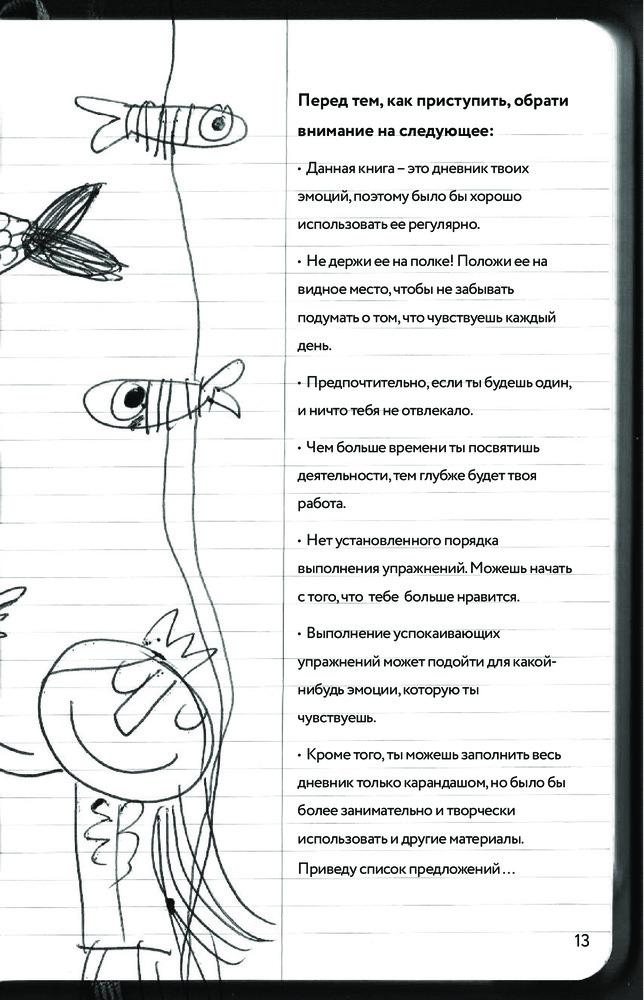 Перед тем, как приступить, обрати
внимание на следующее:
• Данная книга – это дневник твоих
эмоций, поэтому было бы хорошо
использовать ее регулярно.
• Не держи ее на полке! Положи ее на
видное место, чтобы не забывать
подумать о том, что чувствуешь каждый
день.
• Предпочтительно, если ты будешь один,
и ничто тебя не отвлекало.
• Чем больше времени ты посвятишь
деятельности, тем глубже будет твоя
работа.
• Нет установленного порядка
выполнения упражнений. Можешь начать
с того, что тебе больше нравится.
• Выполнение успокаивающих
упражнений может подойти для какой-
нибудь эмоции, которую ты
чувствуешь.
• Кроме того, ты можешь заполнить весь
дневник только карандашом, но было бы
более занимательно и творчески
использовать и другие материалы.
Приведу список предложений…
13